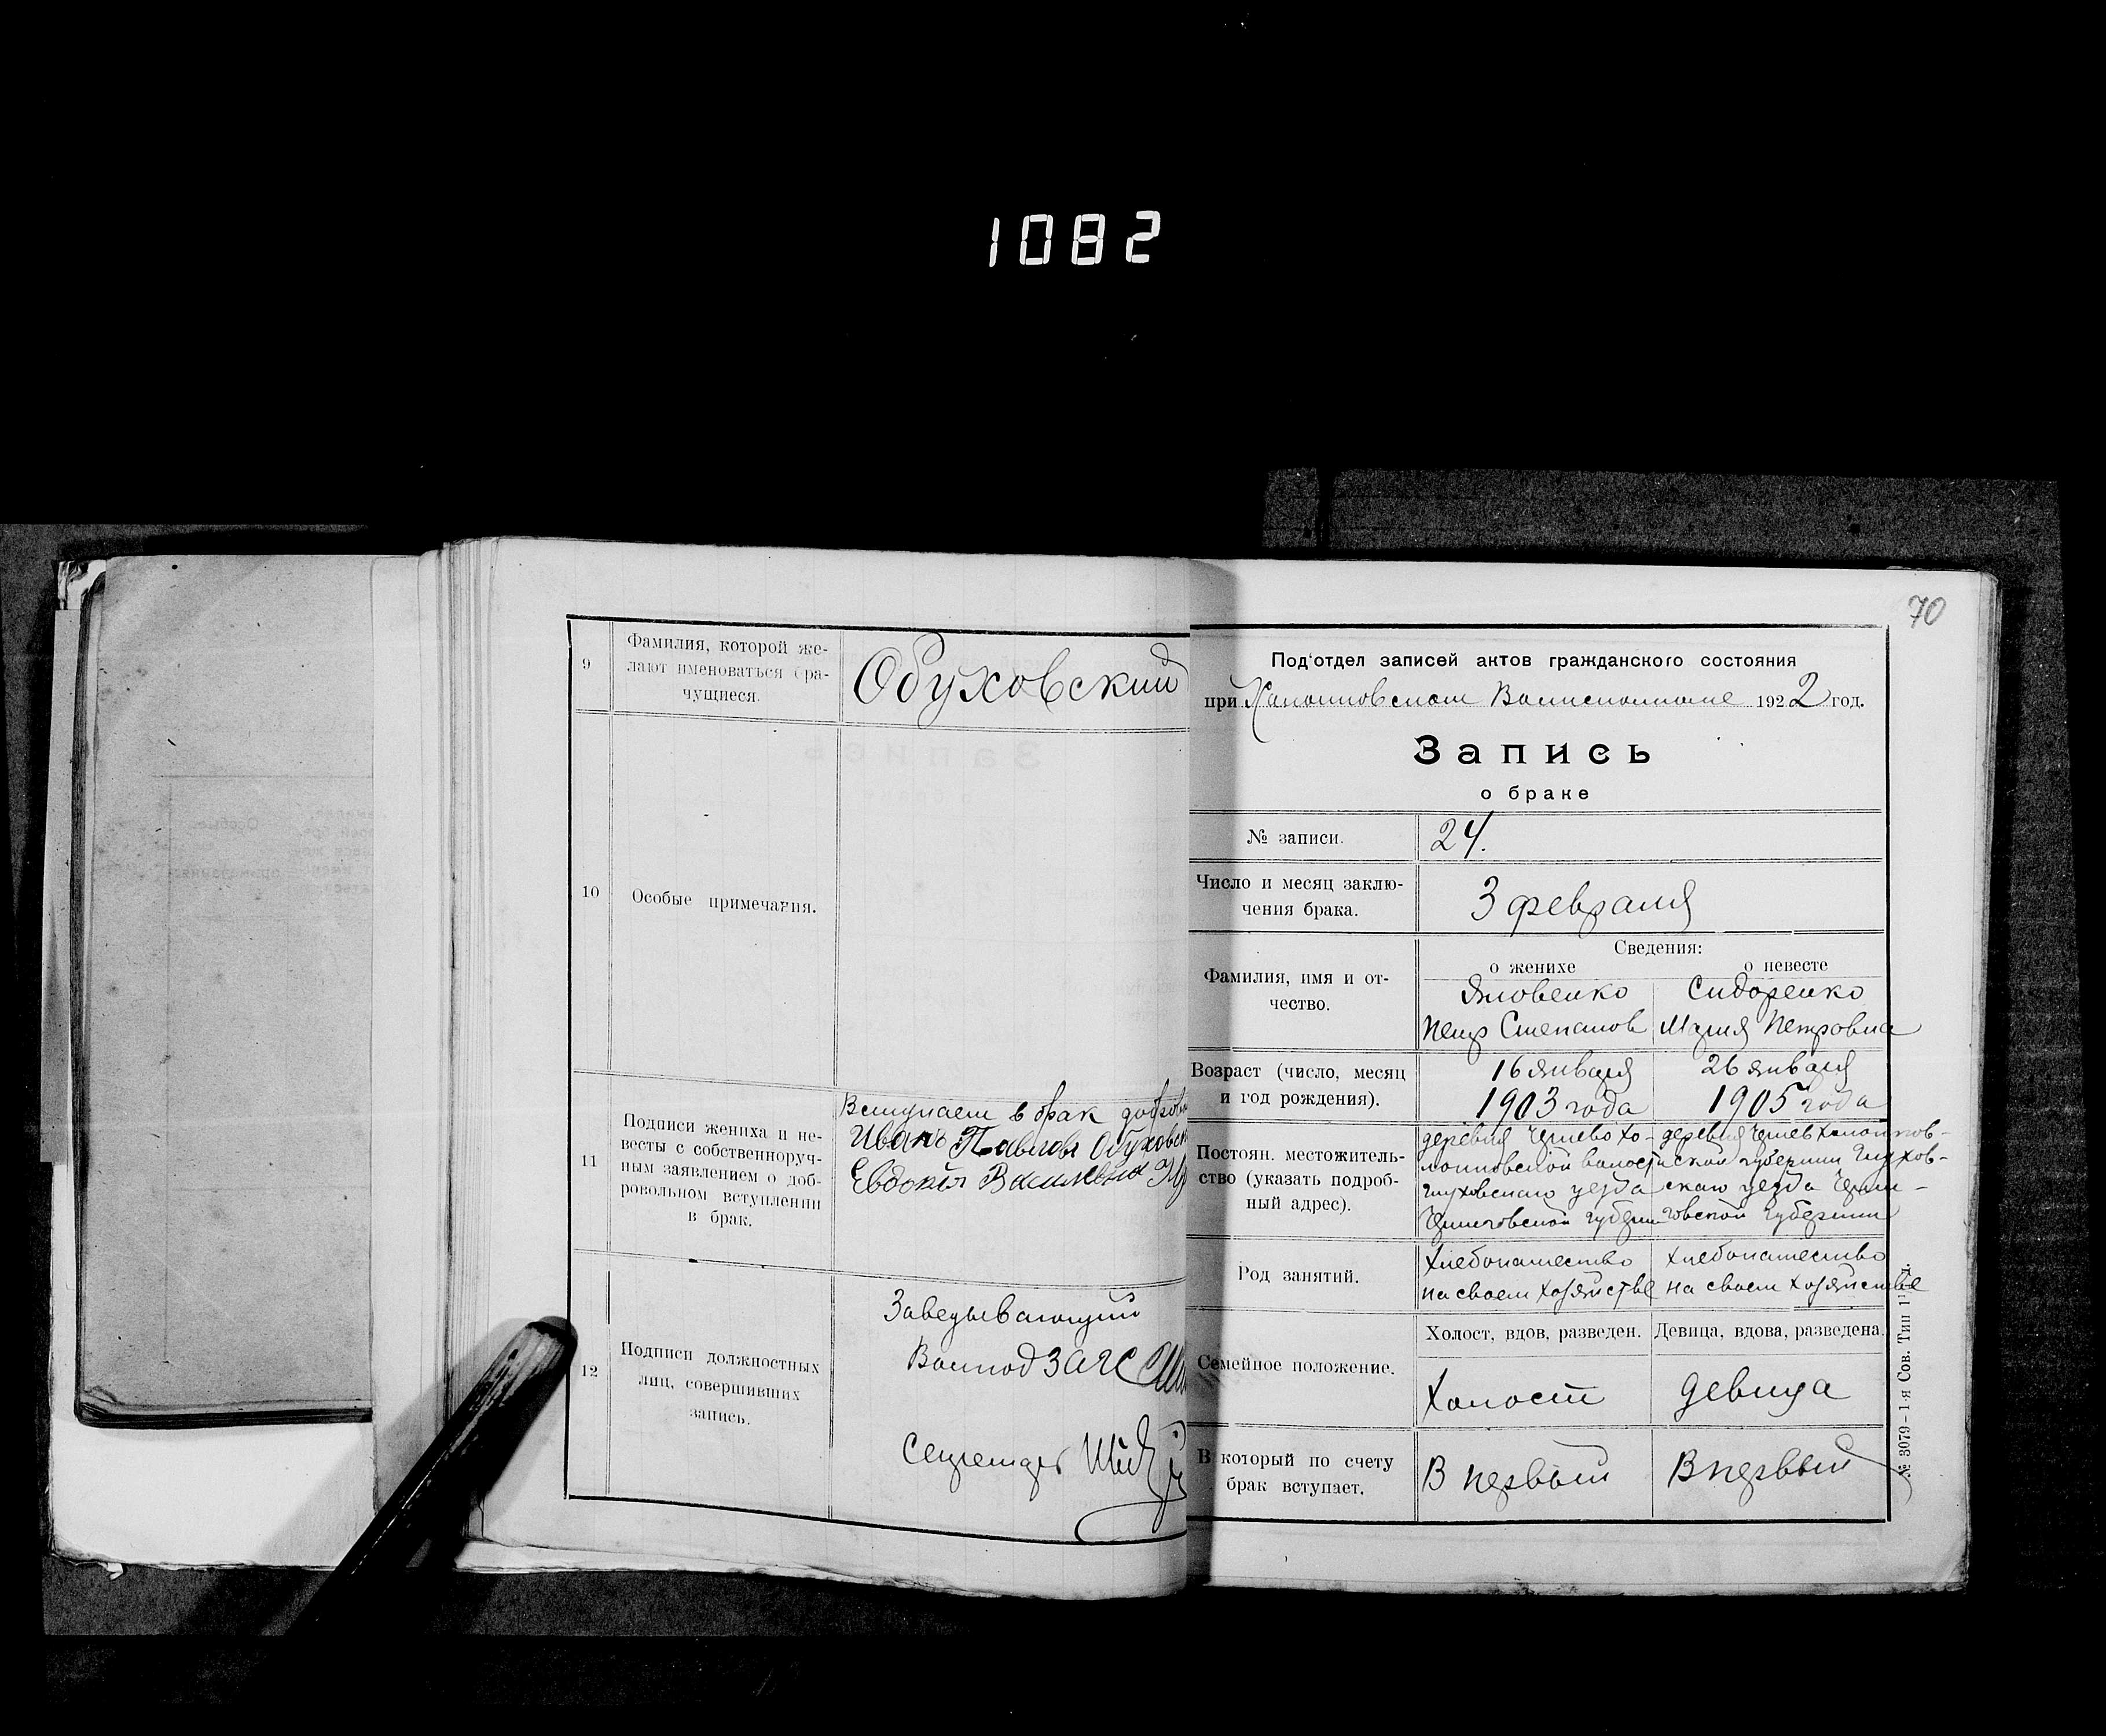 1082
9
Фамилия, которой же-
лают именоваться бра-
чущиеся.
Обуховский
10
Особые примечания.
11
Подписи жениха и не-
весты с собственноруч-
ным заявлением о доб-
ровольном вступлении
в брак.
Вступаем в брак добров
Иванъ Павловъ Обуховск
Евдокия
12
Подписи должностных
лиц, совершивших
запись.
Заведывающий
Волпод ЗАГС
Секретарь
70
Под'отдел записей актов гражданского состояния
при Холопковском Волисполкоме 1922 год.
Запись
о браке
№ записи.
24.
Число и месяц заклю-
чения брака.
3 февраля
Сведения:
о женихе
о невесте
Фамилия, имя и от-
чество.
Яковенко
Петр Степанов
Сидоренко
Мария Петровна
Возраст (число, месяц
и год рождения).
16 января
1903 года
26 января
1905 года
Постоян. местожитель-
ство (указать подроб-
ный адрес).
деревня Хо-
лопковской волости
Глуховского уезда
Черниговской губернии
деревня Холопков-
ской губернии Глухов-
ского уезда Черни-
говской губернии
Род занятий.
Хлебопашество
на своем хозяйстве
Хлебопашество
на своем хозяйстве
Семейное положение.
Холост, вдов, разведен.
Девица, вдова, разведена.
Холост
Девица
В который по счету
брак вступает.
В первый
В первый
№ 3079—1-я Сов. Тип